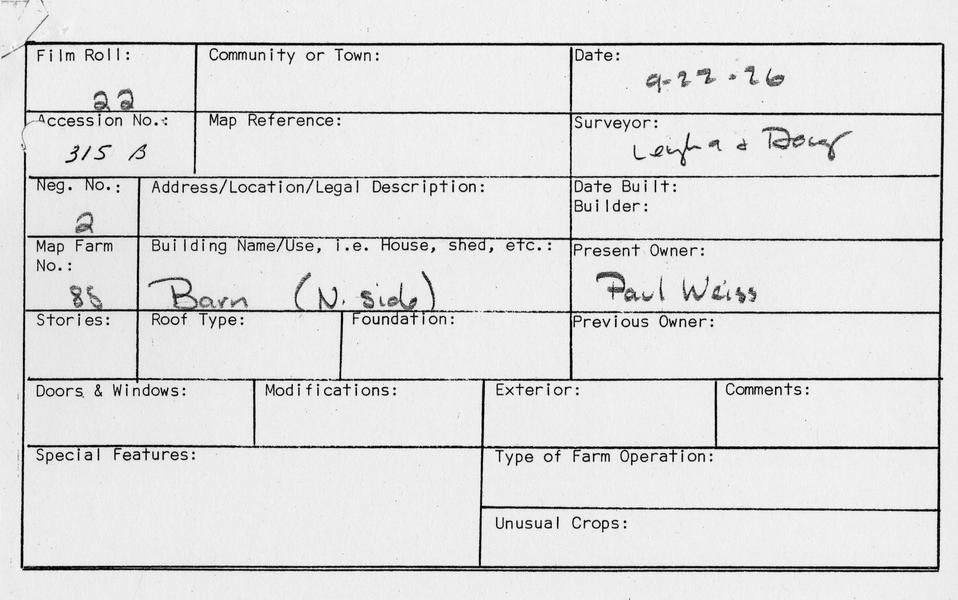 Film Roll:
22
Community or Town:
Date:
9-22-76
Accession No.:
315 B
Map Reference:
Surveyor:
Leigh a & Doug
Neg. No.:
2
Address/Location/Legal Description:
Date Built:
Builder:
Map Farm
No.:
85
Building Name/Use, i.e. House, shed, etc.:
Barn (N. side)
Present Owner:
Paul Weiss
Stories:
Roof Type:
Foundation:
Previous Owner:
Doors & Windows:
Modifications:
Exterior:
Comments:
Special Features:
Type of Farm Operation:
Unusual Crops: